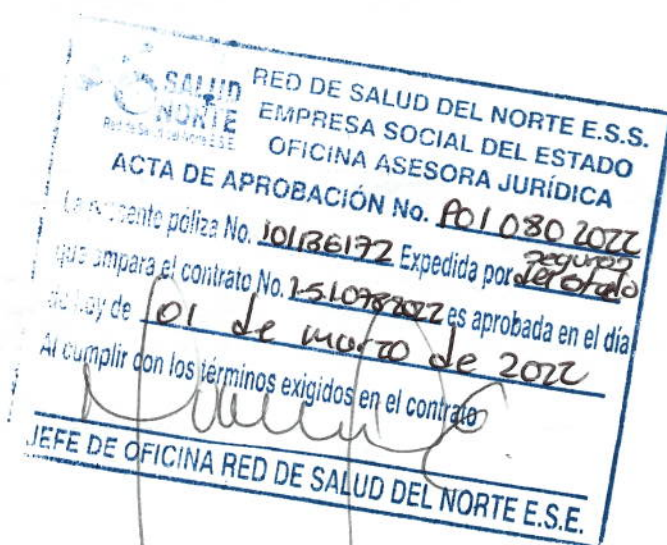 SALUD
NORTE
RED DE SALUD DEL NORTE E.S.S.
EMPRESA SOCIAL DEL ESTADO
OFICINA ASESORA JURÍDICA
ACTA DE APROBACIÓN No. A01 080 2022
La presente póliza No. 101136172 Expedida por Seguros del Estado
que ampara el contrato No. es aprobada en el día
de hoy de 01 de marzo de 2022
Al cumplir con los términos exigidos en el contrato
JEFE DE OFICINA RED DE SALUD DEL NORTE E.S.E.